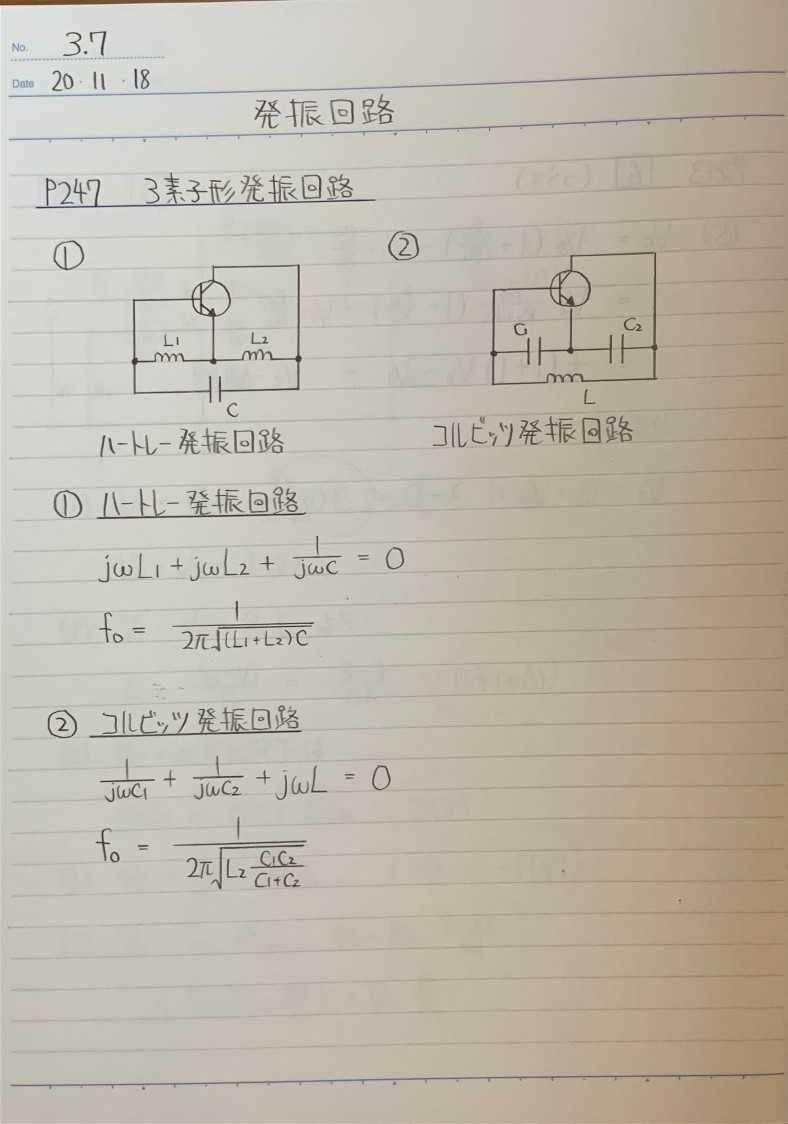 No. 3.7
Date 20・11・18
発振回路
P247 3素子形発振回路
① ②
L1 L2 C1 C2
C L
ハートレー発振回路 コルビッツ発振回路
① ハートレー発振回路
jωL1 + jωL2 + 1/jωC = 0
f0 = 1/2π√(L1+L2)C
② コルビッツ発振回路
1/jωC1 + 1/jωC2 + jωL = 0
f0 = 1/2π√L2 C1C2/C1+C2